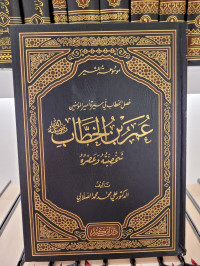 فصل الخطاب في سيرة أمير المؤمنين
عمر بن الخطاب
شخصيته وعصره
تأليف
الدكتور علي محمد محمد الصلابي